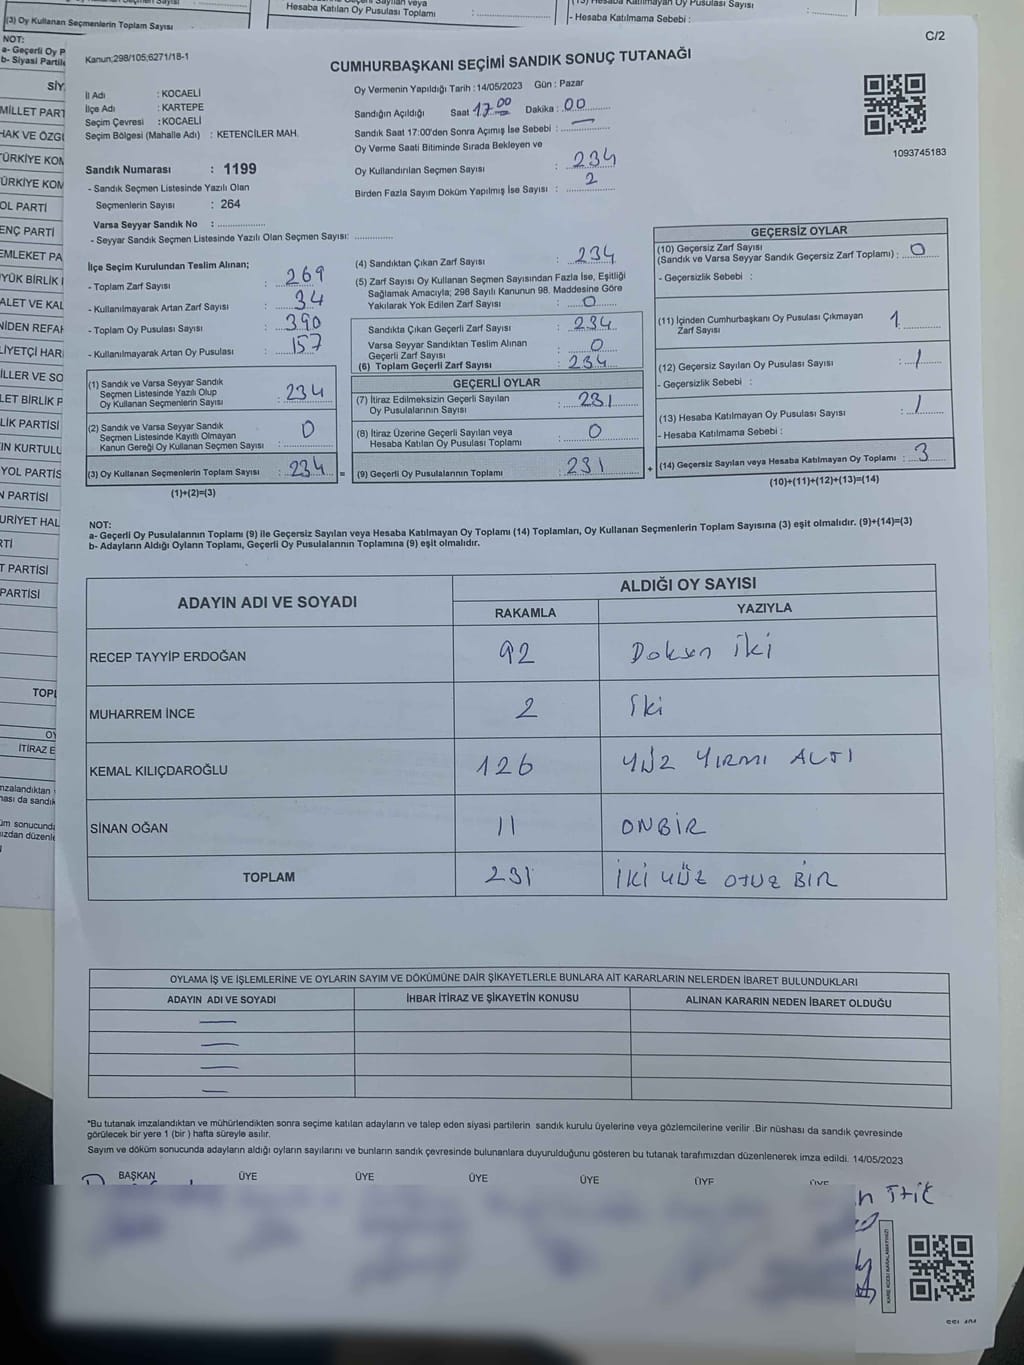 Hesaba Katılan Oy Pusulası Toplamı :
- Hesaba Katılmama Sebebi :
(3) Oy Kullanan Seçmenlerin Toplam Sayısı
NOT:
a- Geçerli Oy P
b- Siyasi Partile
SİY
MİLLET PART
HAK VE ÖZG
TÜRKİYE KOM
ÜRKİYE KOM
OL PARTİ
ENÇ PARTİ
EMLEKET PA
YÜK BİRLİK
ALET VE KAL
NİDEN REFAH
LİYETÇİ HAR
İLLER VE SO
LET BİRLİK P
LİK PARTİSİ
IN KURTULU
YOL PARTİS
N PARTİSİ
URİYET HAL
RTİ
T PARTİSİ
PARTİSİ
TOPL
OY
İTİRAZ E
C/2
Kanun;298/105;6271/18-1
CUMHURBAŞKANI SEÇİMİ SANDIK SONUÇ TUTANAĞI
İl Adı : KOCAELİ
İlçe Adı : KARTEPE
Seçim Çevresi : KOCAELİ
Seçim Bölgesi (Mahalle Adı) : KETENCİLER MAH.
Oy Vermenin Yapıldığı Tarih : 14/05/2023 Gün : Pazar
Sandığın Açıldığı Saat 17.00 Dakika : 00
Sandık Saat 17:00'den Sonra Açımış İse Sebebi : —
Oy Verme Saati Bitiminde Sırada Bekleyen ve
Oy Kullandırılan Seçmen Sayısı : 234
Birden Fazla Sayım Döküm Yapılmış İse Sayısı : 2
1093745183
Sandık Numarası : 1199
- Sandık Seçmen Listesinde Yazılı Olan
Seçmenlerin Sayısı : 264
Varsa Seyyar Sandık No :
- Seyyar Sandık Seçmen Listesinde Yazılı Olan Seçmen Sayısı:
İlçe Seçim Kurulundan Teslim Alınan;
- Toplam Zarf Sayısı : 269
- Kullanılmayarak Artan Zarf Sayısı : 34
- Toplam Oy Pusulası Sayısı : 390
- Kullanılmayarak Artan Oy Pusulası : 157
(1) Sandık ve Varsa Seyyar Sandık
Seçmen Listesinde Yazılı Olup
Oy Kullanan Seçmenlerin Sayısı : 234
(2) Sandık ve Varsa Seyyar Sandık
Seçmen Listesinde Kayıtlı Olmayan
Kanun Gereği Oy Kullanan Seçmen Sayısı : 0
(3) Oy Kullanan Seçmenlerin Toplam Sayısı : 234 =
(1)+(2)=(3)
(4) Sandıktan Çıkan Zarf Sayısı : 234
(5) Zarf Sayısı Oy Kullanan Seçmen Sayısından Fazla İse, Eşitliği
Sağlamak Amacıyla; 298 Sayılı Kanunun 98. Maddesine Göre
Yakılarak Yok Edilen Zarf Sayısı : 0
Sandıkta Çıkan Geçerli Zarf Sayısı : 234
Varsa Seyyar Sandıktan Teslim Alınan
Geçerli Zarf Sayısı : 0
(6) Toplam Geçerli Zarf Sayısı : 234
GEÇERLİ OYLAR
(7) İtiraz Edilmeksizin Geçerli Sayılan
Oy Pusulalarının Sayısı : 231
(8) İtiraz Üzerine Geçerli Sayılan veya
Hesaba Katılan Oy Pusulası Toplamı : 0
(9) Geçerli Oy Pusulalarının Toplamı : 231 +
GEÇERSİZ OYLAR
(10) Geçersiz Zarf Sayısı
(Sandık ve Varsa Seyyar Sandık Geçersiz Zarf Toplamı) : 0
- Geçersizlik Sebebi :
(11) İçinden Cumhurbaşkanı Oy Pusulası Çıkmayan
Zarf Sayısı : 1
(12) Geçersiz Sayılan Oy Pusulası Sayısı : 1
- Geçersizlik Sebebi :
(13) Hesaba Katılmayan Oy Pusulası Sayısı : 1
- Hesaba Katılmama Sebebi :
(14) Geçersiz Sayılan veya Hesaba Katılmayan Oy Toplamı : 3
(10)+(11)+(12)+(13)=(14)
NOT:
a- Geçerli Oy Pusulalarının Toplamı (9) ile Geçersiz Sayılan veya Hesaba Katılmayan Oy Toplamı (14) Toplamları, Oy Kullanan Seçmenlerin Toplam Sayısına (3) eşit olmalıdır. (9)+(14)=(3)
b- Adayların Aldığı Oyların Toplamı, Geçerli Oy Pusulalarının Toplamına (9) eşit olmalıdır.
ADAYIN ADI VE SOYADI ALDIĞI OY SAYISI
RAKAMLA YAZIYLA
RECEP TAYYİP ERDOĞAN 92 Doksan İki
MUHARREM İNCE 2 İki
KEMAL KILIÇDAROĞLU 126 YÜZ YIRMI ALTI
SİNAN OĞAN 11 ONBİR
TOPLAM 231 İKİ YÜZ OTUZ BİR
OYLAMA İŞ VE İŞLEMLERİNE VE OYLARIN SAYIM VE DÖKÜMÜNE DAİR ŞİKAYETLERLE BUNLARA AİT KARARLARIN NELERDEN İBARET BULUNDUKLARI
ADAYIN ADI VE SOYADI İHBAR İTİRAZ VE ŞİKAYETİN KONUSU ALINAN KARARIN NEDEN İBARET OLDUĞU
*Bu tutanak imzalandıktan ve mühürlendikten sonra seçime katılan adayların ve talep eden siyasi partilerin sandık kurulu üyelerine veya gözlemcilerine verilir .Bir nüshası da sandık çevresinde
görülecek bir yere 1 (bir ) hafta süreyle asılır.
Sayım ve döküm sonucunda adayların aldığı oyların sayılarını ve bunların sandık çevresinde bulunanlara duyurulduğunu gösteren bu tutanak tarafımızdan düzenlenerek imza edildi. 14/05/2023
BAŞKAN ÜYE ÜYE ÜYE ÜYE ÜYE ÜYE
KARE KODU KARALAMAYINIZ!